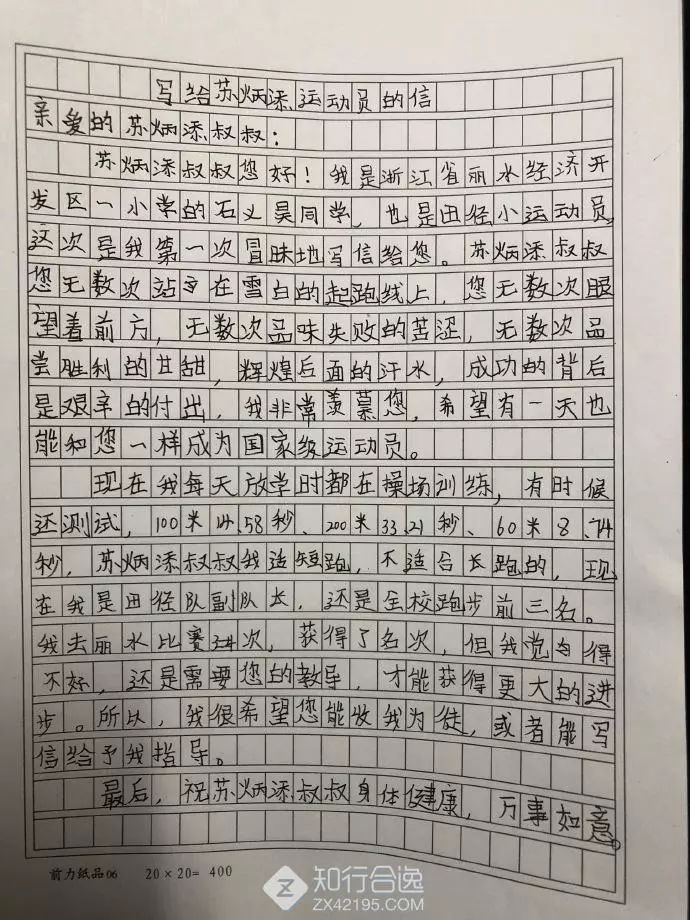 写给苏炳添运动员的信
亲爱的苏炳添叔叔：
苏炳添叔叔您好！我是浙江省丽水经济开
发区一小学的石义昊同学，也是田径小运动员，
这次是我第一次冒昧地写信给您。苏炳添叔叔
您无数次站立在雪白的起跑线上，您无数次眼
望着前方，无数次品味失败的苦涩，无数次品
尝胜利的甘甜，辉煌后面的汗水，成功的背后
是艰辛的付出，我非常羡慕您，希望有一天也
能和您一样成为国家级运动员。
现在我每天放学时都在操场训练，有时候
还测试，100米14.58秒、200米33.21秒、60米8.74
秒，苏炳添叔叔我适短跑，不适合长跑的，现
在我是田径队副队长，还是全校跑步前三名。
我去丽水比赛 次，获得了名次，但我觉 得
不好，还是需要您的教导，才能获得更大的进
步。所以，我很希望您能收我为徒，或者能写
信给予我指导。
最后，祝苏炳添叔叔身体健康，万事如意。
前力纸品06 20×20=400
知行合逸
ZX42195.COM